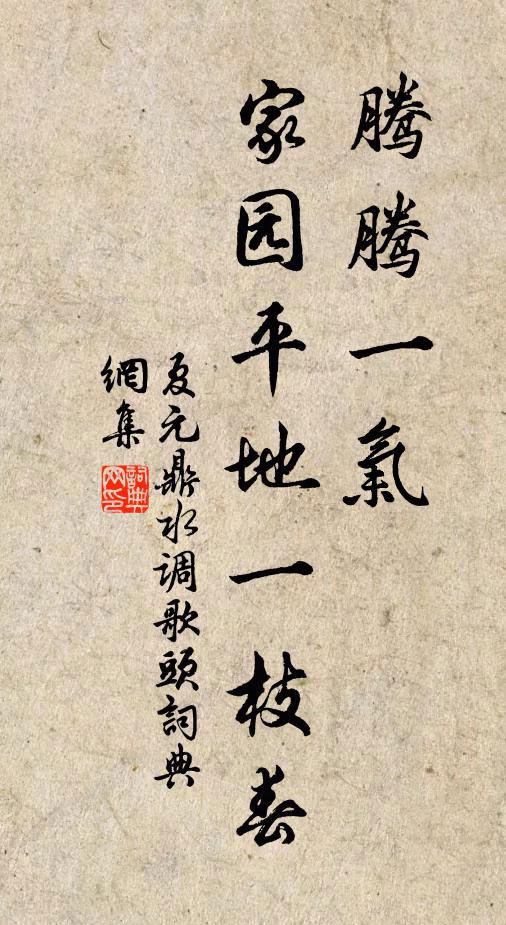 腾腾一氣
家园平地一枝春
夏元鼎水调歌頭詞典
網集
詞典網印